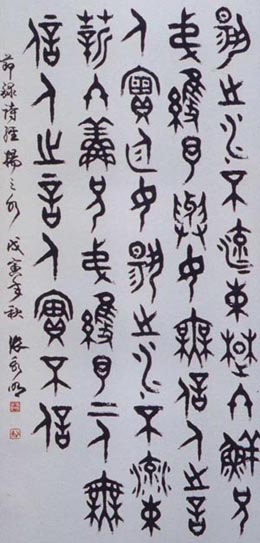 揚之水不流束楚終鮮兄
弟維予與女無信人之言
人實迋女揚之水不流束
薪終鮮兄弟維予二人無
信人之言人實不信
節錄詩經揚之水 戊寅年秋